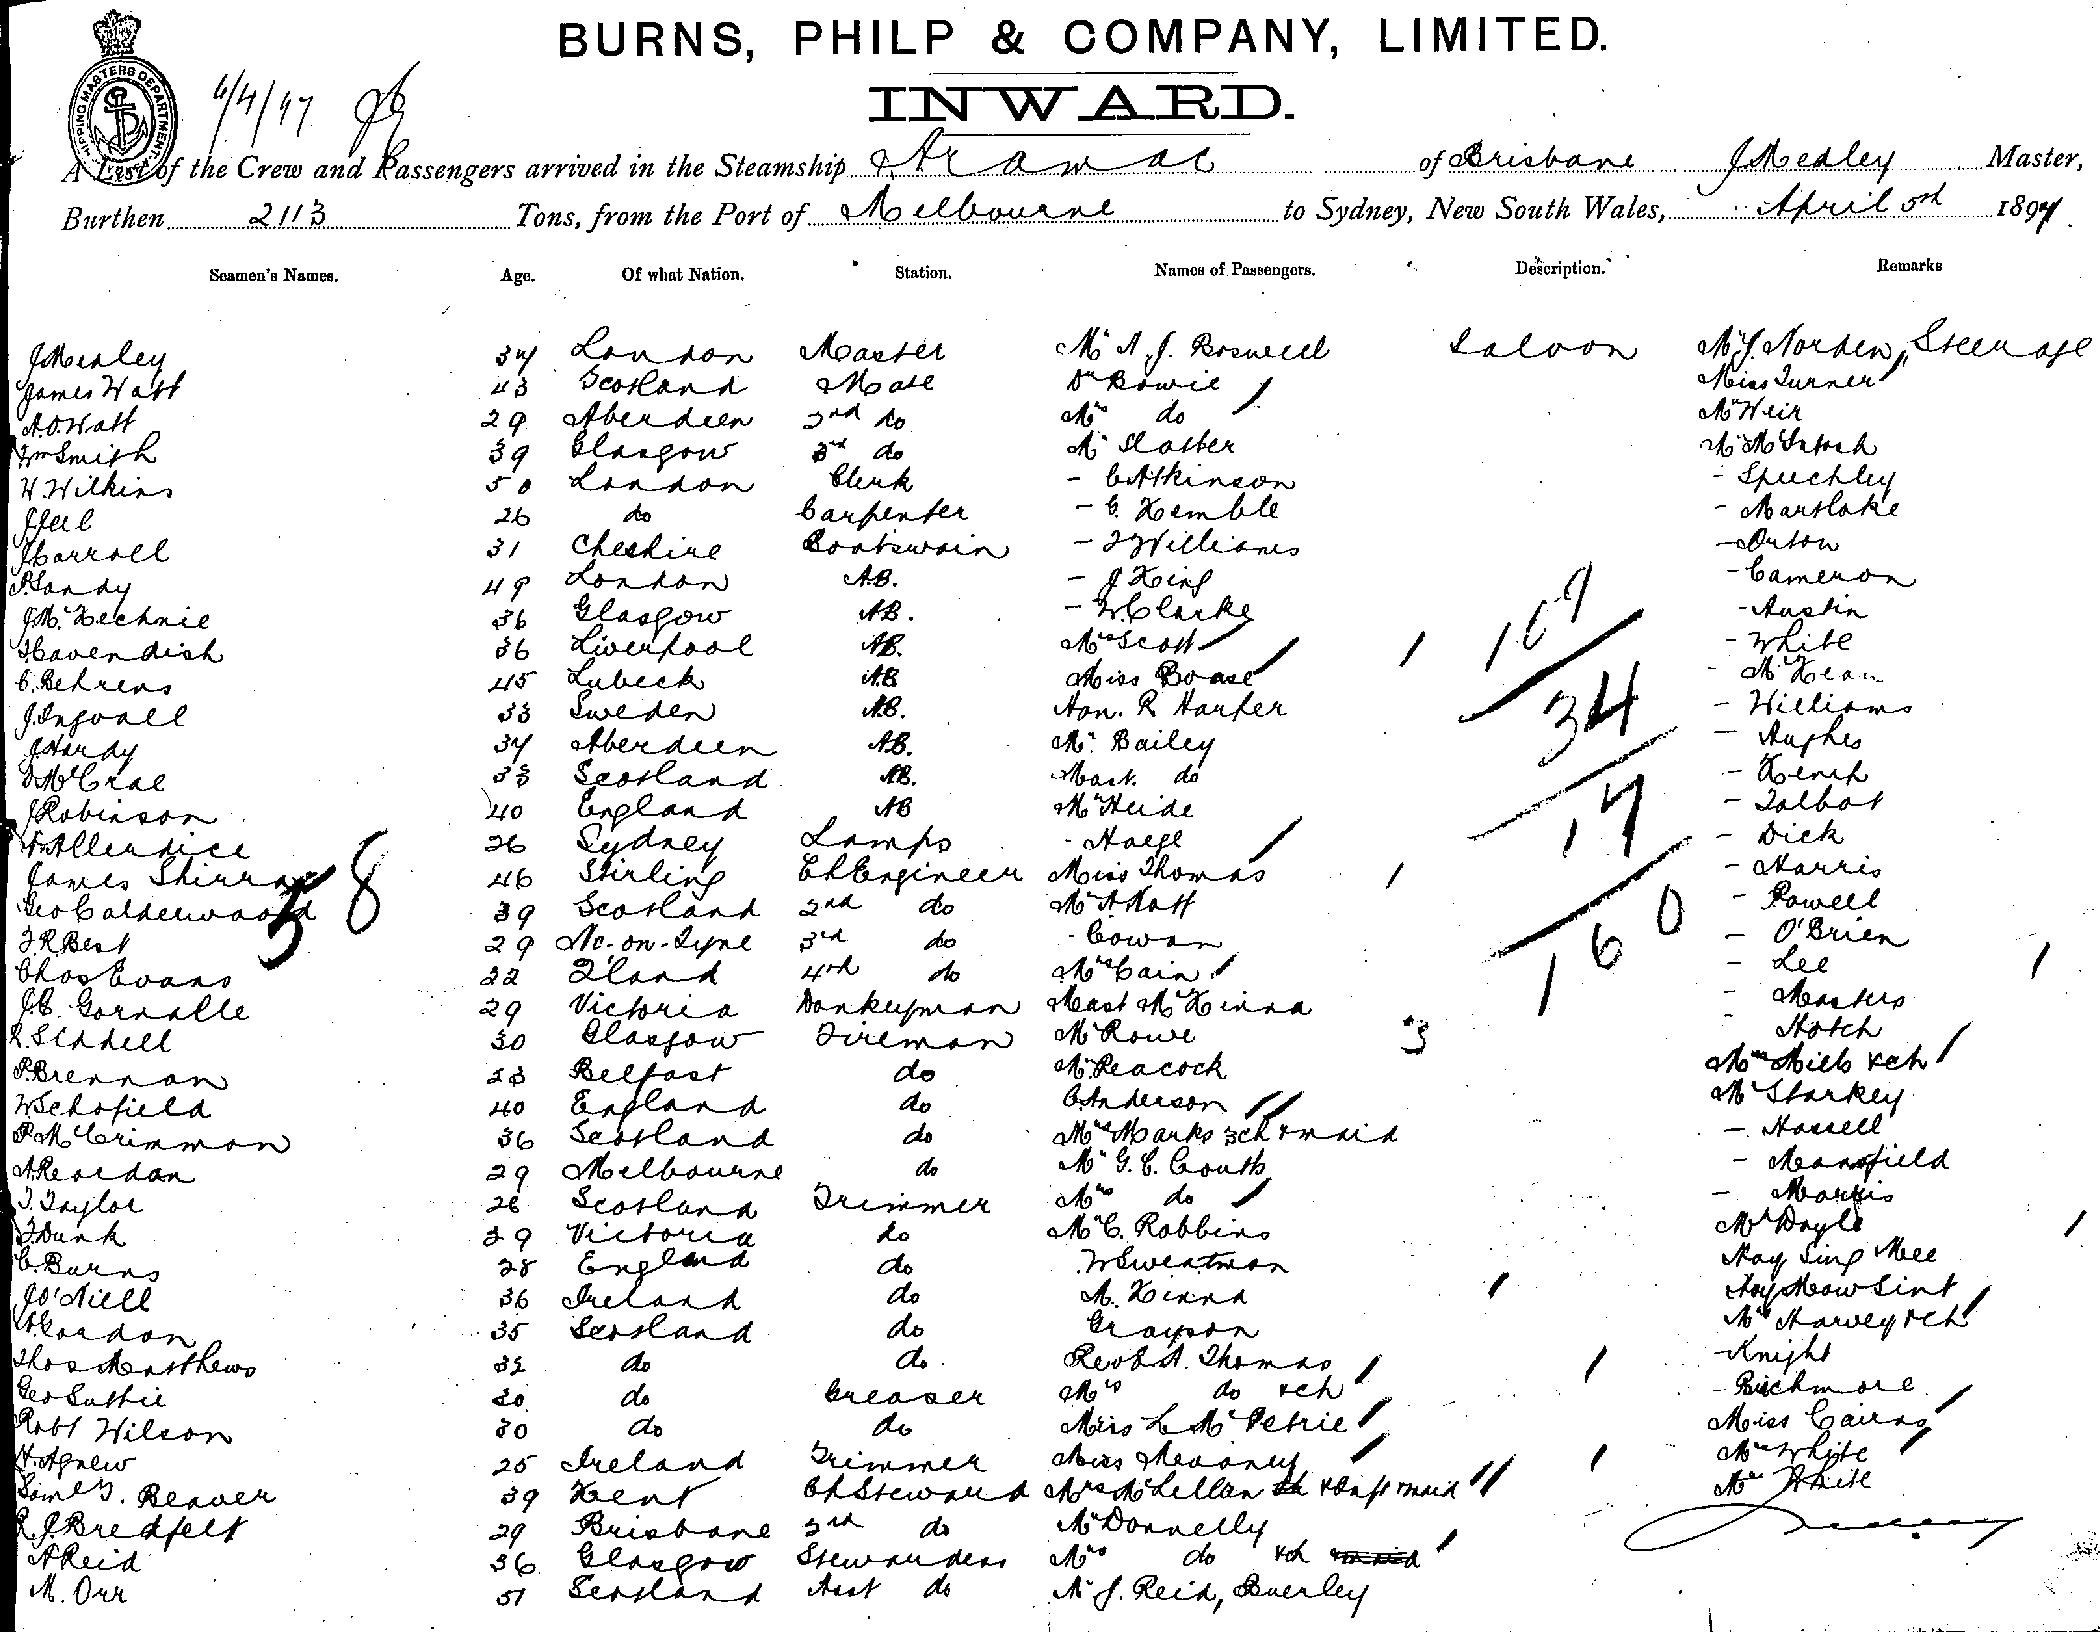 BURNS, PHILP & COMPANY, LIMITED.
INWARD.
6/4/97
A List of the Crew and Passengers arrived in the Steamship Aramac of Brisbane J Medley Master,
Burthen 2113 Tons, from the Port of Melbourne to Sydney, New South Wales, April 5th 1897.
Seamen's Names. Age. Of what Nation. Station. Names of Passengers. Description. Remarks
J Medley 37 London Master Mr A. J. Boswell Saloon Mr J. Norden, Steerage
James Watt 43 Scotland Mate Dr Bowie Miss Turner
A.O. Watt 29 Aberdeen 2nd do Mrs do Mr Weir
Wm Smith 39 Glasgow 3rd do Mr Slatter Mr McIntosh
H. Wilkins 50 London Clerk - C Atkinson - Speechley
J Jeel 26 do Carpenter - G. Kemble - Martlake
J Carroll 31 Cheshire Boatswain - T Williams - Orton
P. Sandy 49 London A.B. - J King - Cameron
J. McKechnie 36 Glasgow A.B. - W. Clarke - Austin
J Cavendish 36 Liverpool AB. Mrs Scott - White
C. Behrens 45 Lubeck AB Miss Boase - McKean
J. Ingvall 33 Sweden A.B. Hon. R Harper - Williams
J Hardy 37 Aberdeen AB. Mr. Bailey - Hughes
D McCrae 33 Scotland AB. Mast. do - Kench
J Robinson 40 England AB Mr Heide - Talbot
W Allerdice 26 Sydney Lamps - Haege - Dick
James Shirra 46 Stirling Ch Engineer Miss Thomas - Harris
Geo Calderwood 39 Scotland 2nd do Mr A Katt - Powell
J. R Best 29 Nc-on-Tyne 3rd do - Cowan - O'Brien
Chas Evans 22 I'land 4th do Mrs Cain - Lee
J. C. Gornalle 29 Victoria Donkeyman Mast McKinna - Masters
R. Siddell 30 Glasgow Fireman Mr Rowe - Hotch
P. Brennan 23 Belfast do Mr Peacock Mrs Mills & ch
W Schofield 40 England do C. Anderson Mr Starkey
P. McCrimmon 36 Scotland do Mrs Marks 3ch & maid - Hassell
A Reordan 29 Melbourne do Mr G. C. Couth - Mansfield
J. Taylor 26 Scotland Trimmer Mrs do - Morris
J Dunk 29 Victoria do Mr C. Robbins Mr Doyle
C Burns 28 England do W Sweatman Hay Sing Mee
J O'Niell 36 Ireland do A. Kinna Hoy Meow Sint
A. Gordon 35 Scotland do Grayson Mrs Harvey & ch
Thos Matthews 32 do do Rev E A. Thomas - Knight
Geo Suttie 30 do Greaser Mrs do & ch - Birchmore
Robt Wilson 30 do do Miss L McPetrie Miss Cairns
H Agnew 25 Ireland Trimmer Miss Mooney Mrs White
Saml J. Beaver 39 Kent Ch Steward Mrs McLellan & Inft & maid Mrs White
R. J. Bredfelt 29 Brisbane 2nd do Mr Donnelly
A Reid 36 Glasgow Stewardess Mrs do & ch
M. Orr 51 Scotland Asst do Mr J. Reid, Buerley
58
109
34
17
160
3